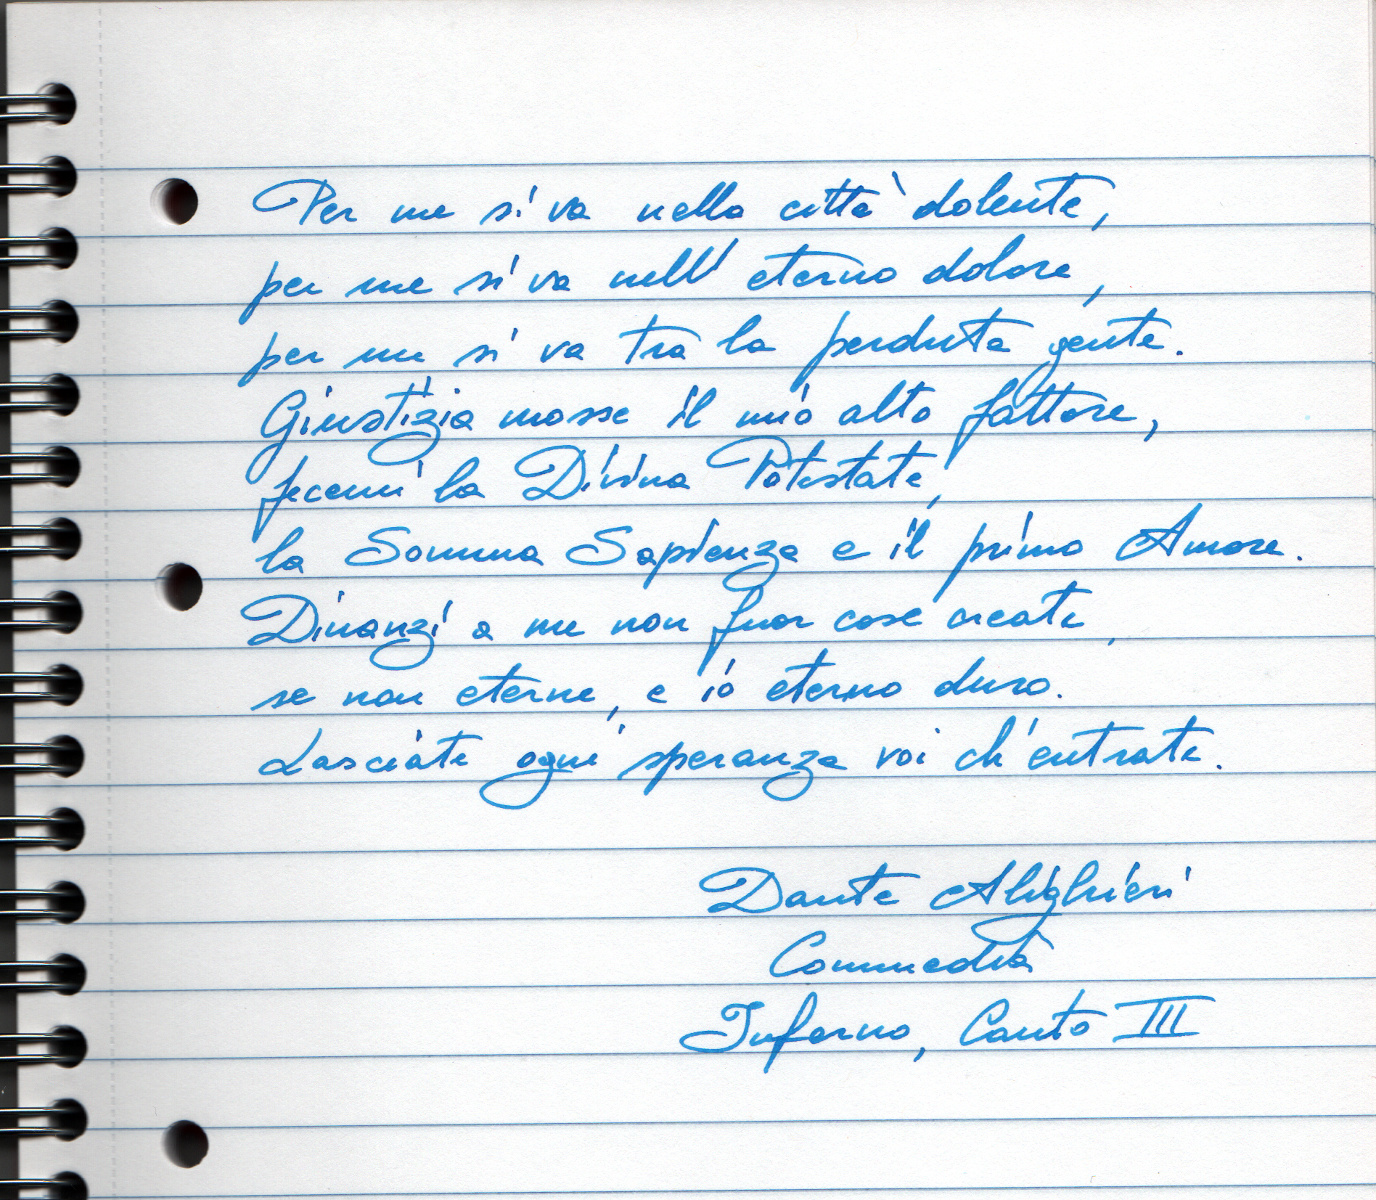 Per me si va nella città dolente,
per me si va nell' eterno dolore,
per me si va tra la perduta gente.
Giustizia mosse il mio alto fattore,
fecemi la Divina Potestate,
la Somma Sapienza e il primo Amore.
Dinanzi a me non fuor cose create,
se non eterne, e io eterno duro.
Lasciate ogni speranza voi ch'entrate.
Dante Alighieri
Commedia
Inferno, Canto III